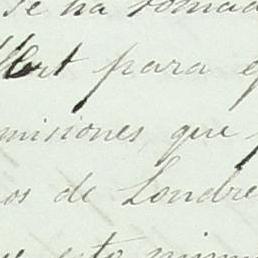 se ha tomad
para
misiones, que
os de Londre
esto mism